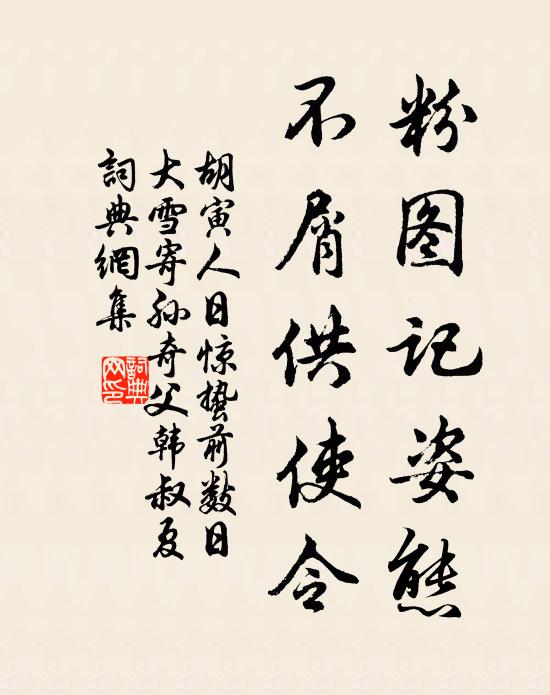 粉图记姿態
不屑供使令
胡寅人日惊蛰前数日
大雪寄孙奇父韩叔夏
詞典網集
詞典網印